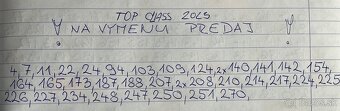 TOP CLASS 2025
! NA VYMENU PREDAJ !
4, 7, 11, 22, 24, 94, 103, 109, 124, 2x140, 141, 142, 154,
164, 165, 173, 187, 188, 207, 2x208, 210, 214, 217, 224, 225
226, 227, 234, 248, 247, 250, 251, 270,